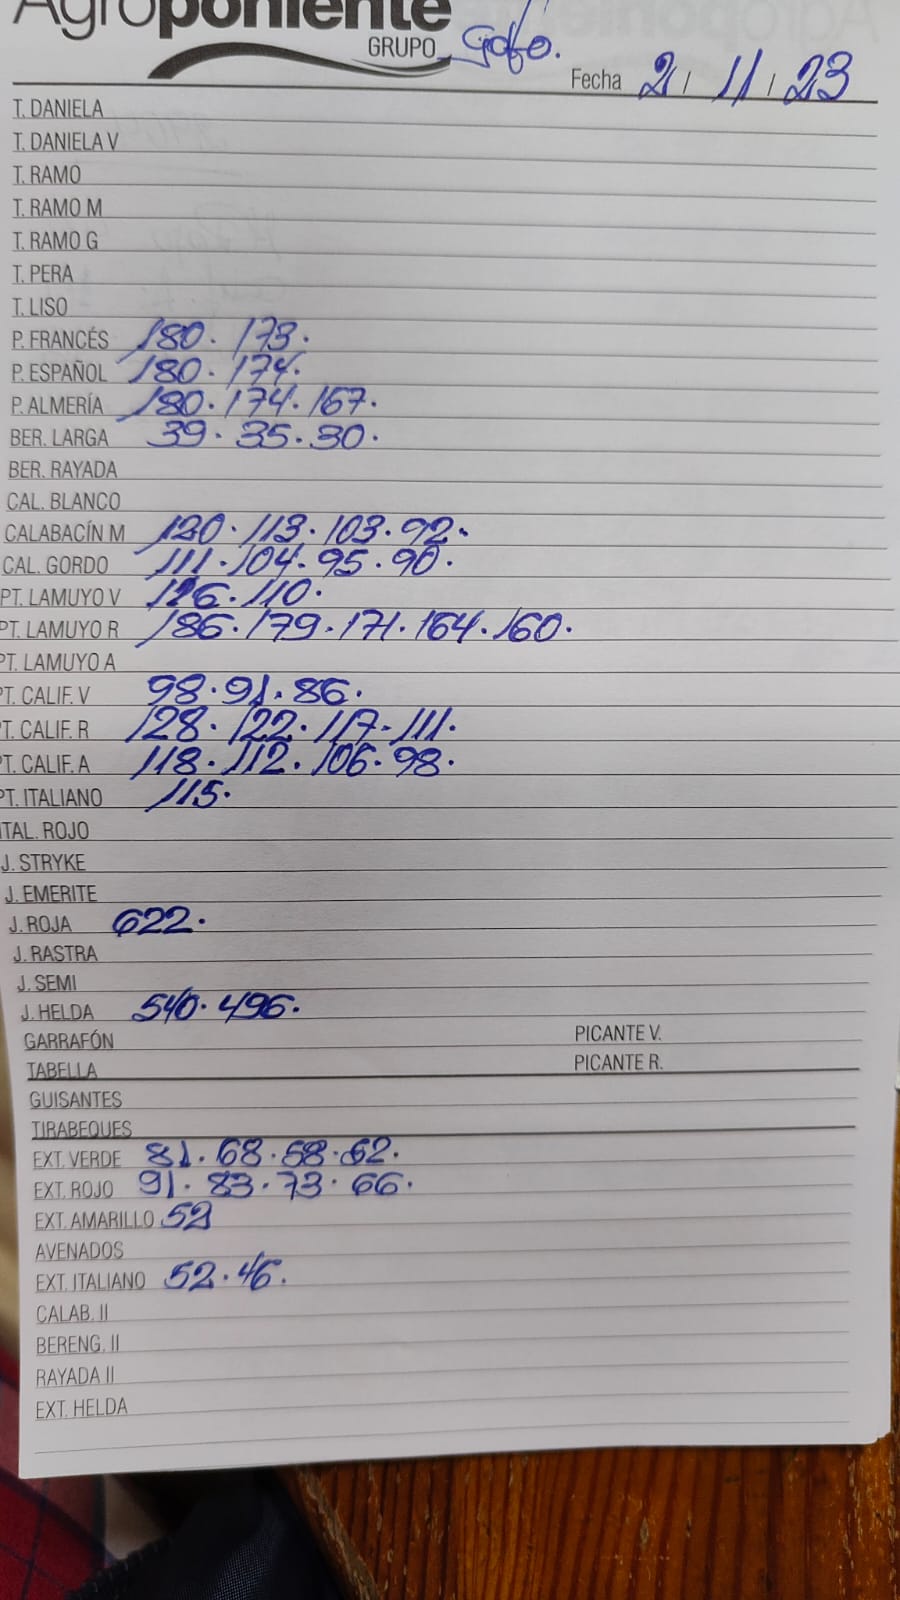 Agroponiente
GRUPO
Fecha 2 / 11 / 23
T. DANIELA
T. DANIELA V
T. RAMO
T. RAMO M
T. RAMO G
T. PERA
T. LISO
P. FRANCÉS 180. 173.
P. ESPAÑOL 180. 174.
P. ALMERÍA 180. 174. 167.
BER. LARGA 39. 35. 30.
BER. RAYADA
CAL. BLANCO
CALABACÍN M 120. 113. 103. 92.
CAL. GORDO 111. 104. 95. 90.
PT. LAMUYO V 126. 110.
PT. LAMUYO R 186. 179. 171. 164. 160.
PT. LAMUYO A
PT. CALIF. V 98. 91. 86.
PT. CALIF. R 128. 122. 117. 111.
PT. CALIF. A 118. 112. 106. 98.
PT. ITALIANO 115.
ITAL. ROJO
J. STRYKE
J. EMERITE
J. ROJA 622.
J. RASTRA
J. SEMI
J. HELDA 540. 496.
GARRAFÓN PICANTE V.
TABELLA PICANTE R.
GUISANTES
TIRABEQUES
EXT. VERDE 81. 68. 58. 62.
EXT. ROJO 91. 83. 73. 66.
EXT. AMARILLO 52
AVENADOS
EXT. ITALIANO 52. 46.
CALAB. II
BERENG. II
RAYADA II
EXT. HELDA